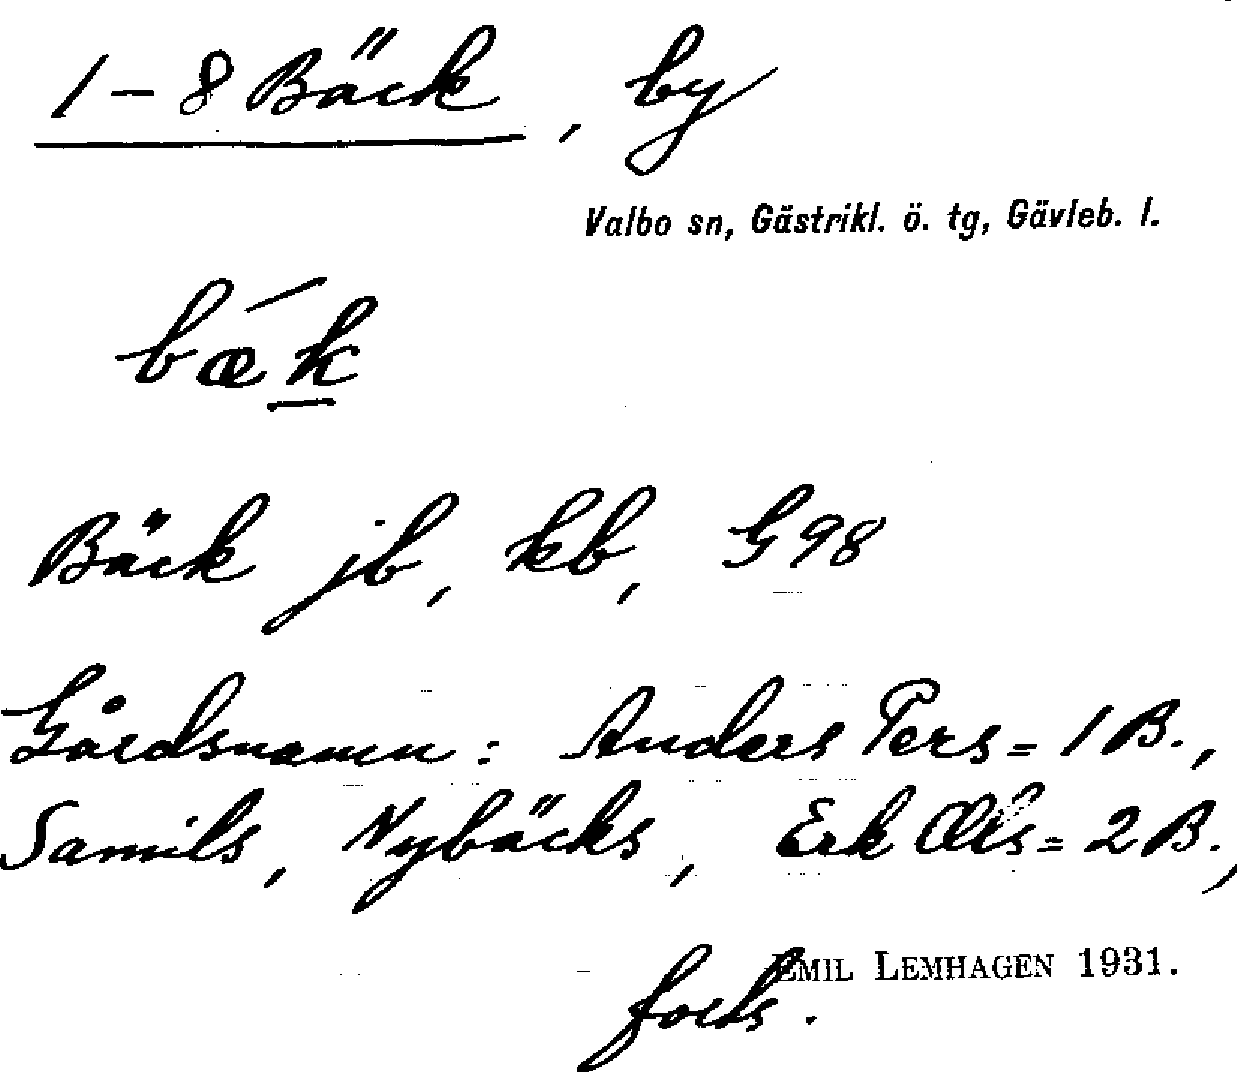 1-8 Bäck, by
Valbo sn, Gästrikl. ö. tg, Gävleb. l.
bǽk
Bäck jb, kb, G98
Gårdsnamn: Anders Pers = 1 B.,
Samils, Nybäcks, Erk Ols = 2 B.,
EMIL LEMHAGEN 1931.
forts.